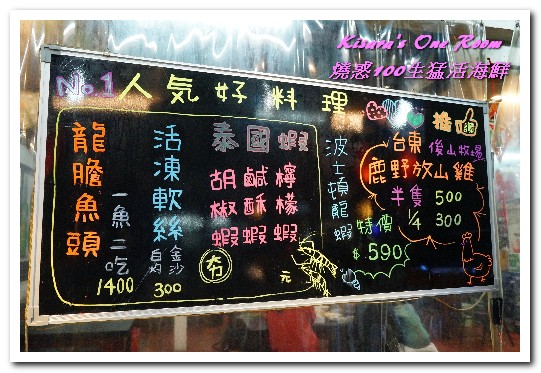 Kisara's One Room
燒惑100生猛活海鮮
No.1人気好料理
推
龍膽魚頭
一魚二吃
1400
活凍軟絲
白灼
金沙
300
泰國蝦
胡椒蝦
鹹酥蝦
檸檬蝦
夯
元
波士頓龍蝦
特價
$590
台東
後山牧場
鹿野放山雞
半隻 500
1/4 300